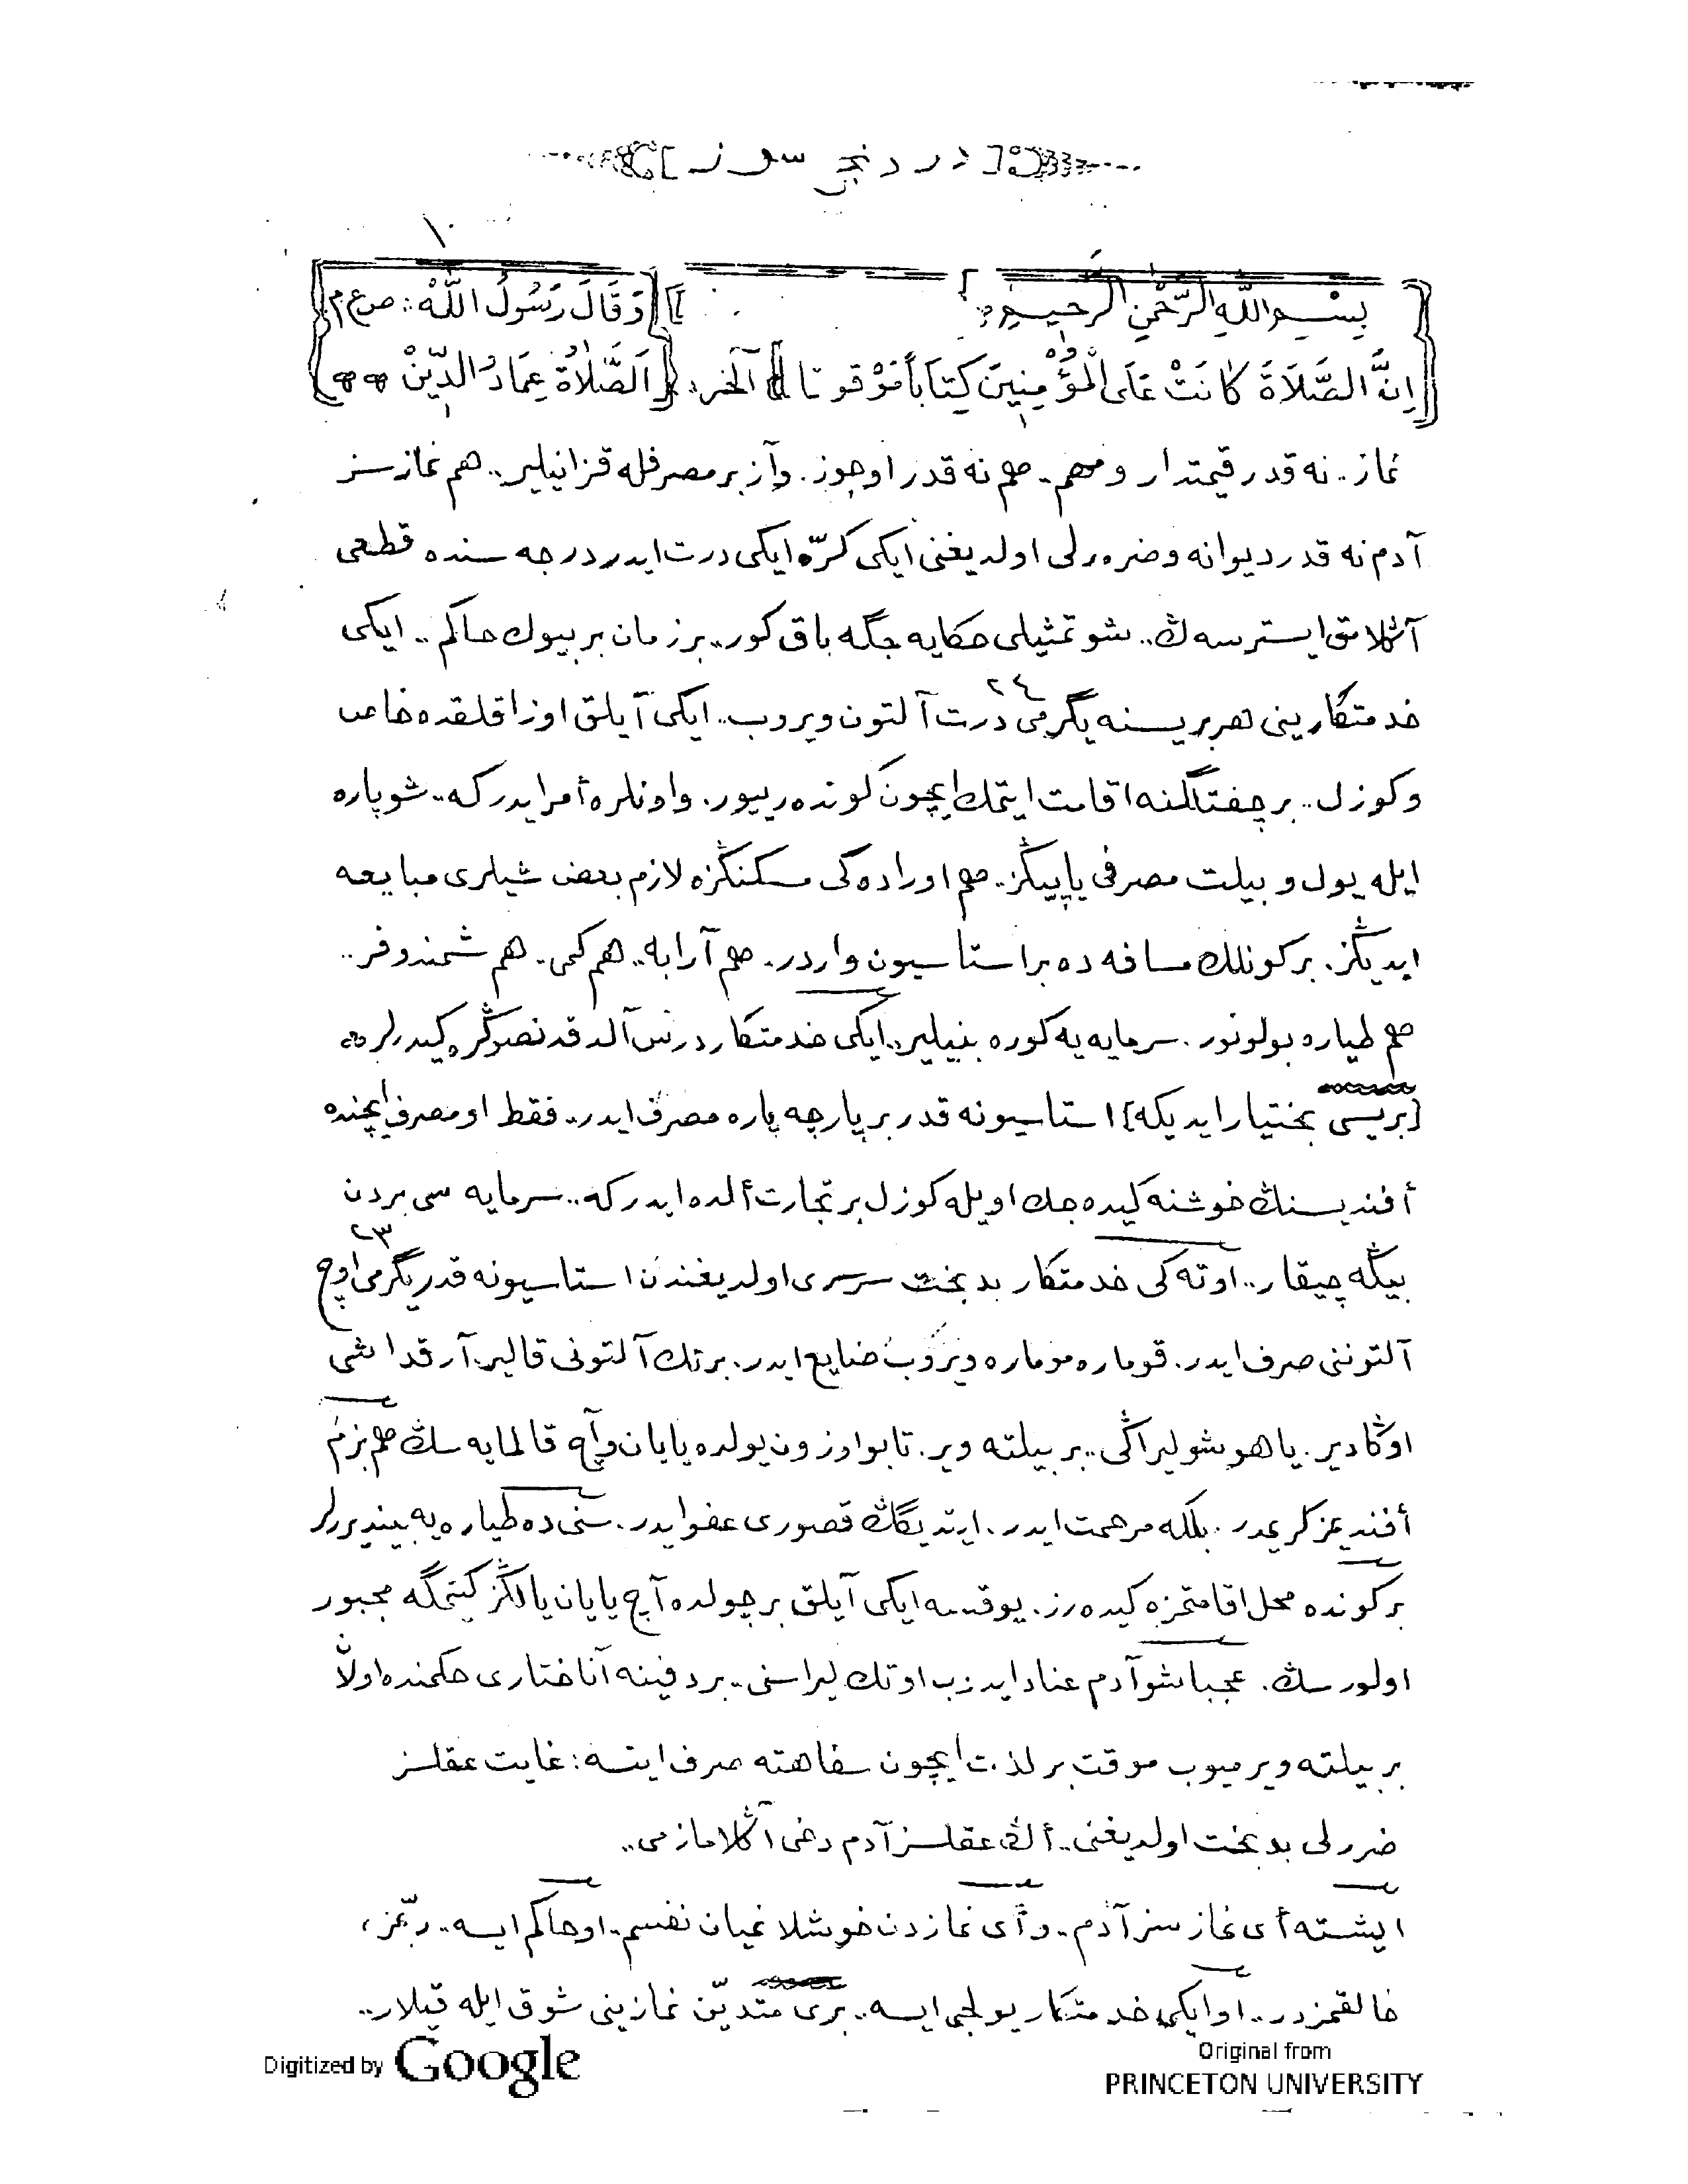 [دردنجی سوز]
١٠
بِسْــمِ اللّٰهِ الرَّحْمٰنِ الرَّحِيــمِ
وَقَالَ رَسُولُ اللّٰهْ : صعم
{اِنَّ الصَّلَاةَ كَانَتْ عَلَى الْمُؤْمِنِينَ كِتَاباً مَوْقوتا} آلخر.. {اَلصَّلَاةُ عِمَادُ الدِّيْنْ}
نماز.. نه قدر قیمتدار و مهم.. هم نه قدر اوجوز. و آز بر مصرفله قزانیلیر.. هم نمازسز
آدم نه قدر دیوانه و ضررلی اولدیغنی ایکی کرّه ایکی درت ایدر درجه سنده قطعی
آڭلامق ایسترسه ڭ.. شو تمثیلی حکایه جگه باق کور.. بر زمان بر بیوك حاکم.. ایکی
خدمتکارینی هر بریسنه یگرمی درت آلتون ویروب.. ایکی آیلق اوزاقلقده خاص
٢٤
و کوزل.. بر چفتلگنه اقامت ایتمك ایچون کونده رییور. و اونلره أمر ایدر که.. شو پاره
ایله یول و بیلت مصرفی یاپیڭز.. هم اوراده کی مسکنڭزه لازم بعض شیلری مبایعه
ایدیڭز. بر کونلك مسافه ده بر استاسیون واردر. هم آرابه.. هم کمی. هم شمندوفر..
هم طیاره بولونور. سرمایه یه کوره بنیلیر.. ایکی خدمتکار درس آلدقدنصوڭره کیدرلر
[بریسی بختیار ایدیکه] استاسیونه قدر بر پارچه پاره مصرف ایدر.. فقط او مصرف ایچنده
أفندیسنڭ خوشنه کیده جك اویله کوزل بر تجارت ألده ایدر که.. سرمایه سی بردن
بیڭه چیقار.. اوته کی خدمتکار بدبخت سرسری اولدیغندن استاسیونه قدر یگرمی اوچ
٢٣
آلتوننی صرف ایدر. قوماره موماره ویروب ضایع ایدر. بر تك آلتونی قالیر. آرقداشی
اوڭا دیر. یاهو شو لیراڭی.. بر بیلته ویر. تا بو اوزون یولده یایان و آچ قالمایه سڭ هم بزم
أفندیمز کریمدر. بلکه مرحمت ایدر. ایتدیگڭ قصوری عفو ایدر. سنی ده طیاره یه بیندیررلر
بر کونده محل اقامتمزه کیده رز. یوقسه ایکی آیلق بر چولده آچ یایان یالڭز کیتمگه مجبور
اولورسڭ. عجبا شو آدم عناد ایدوب او تك لیراسنی.. بر دفینه آناختاری حکمنده اولان
بر بیلته ویرمیوب موقت بر لذت ایچون سفاهته صرف ایتسه: غایت عقلسز
ضررلی بدبخت اولدیغنی.. أڭ عقلسز آدم دخی آڭلامازمی..
ایشته أی نمازسز آدم.. و أی نمازدن خوشلانمیان نفسم.. او حاکم ایسه.. ربّمز،
خالقمزدر.. او ایکی خدمتکار یولجی ایسه.. بری متدیّن نمازینی شوق ایله قیلار..
Digitized by Google
Original from
PRINCETON UNIVERSITY